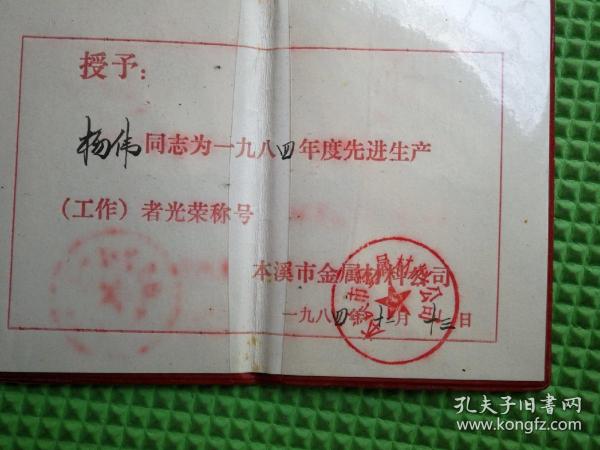 授予：
杨伟同志为一九八四年度先进生产
（工作）者光荣称号
本溪市金属材料公司
一九八四年十二月十三日
孔夫子旧书网
www.kongfz.com